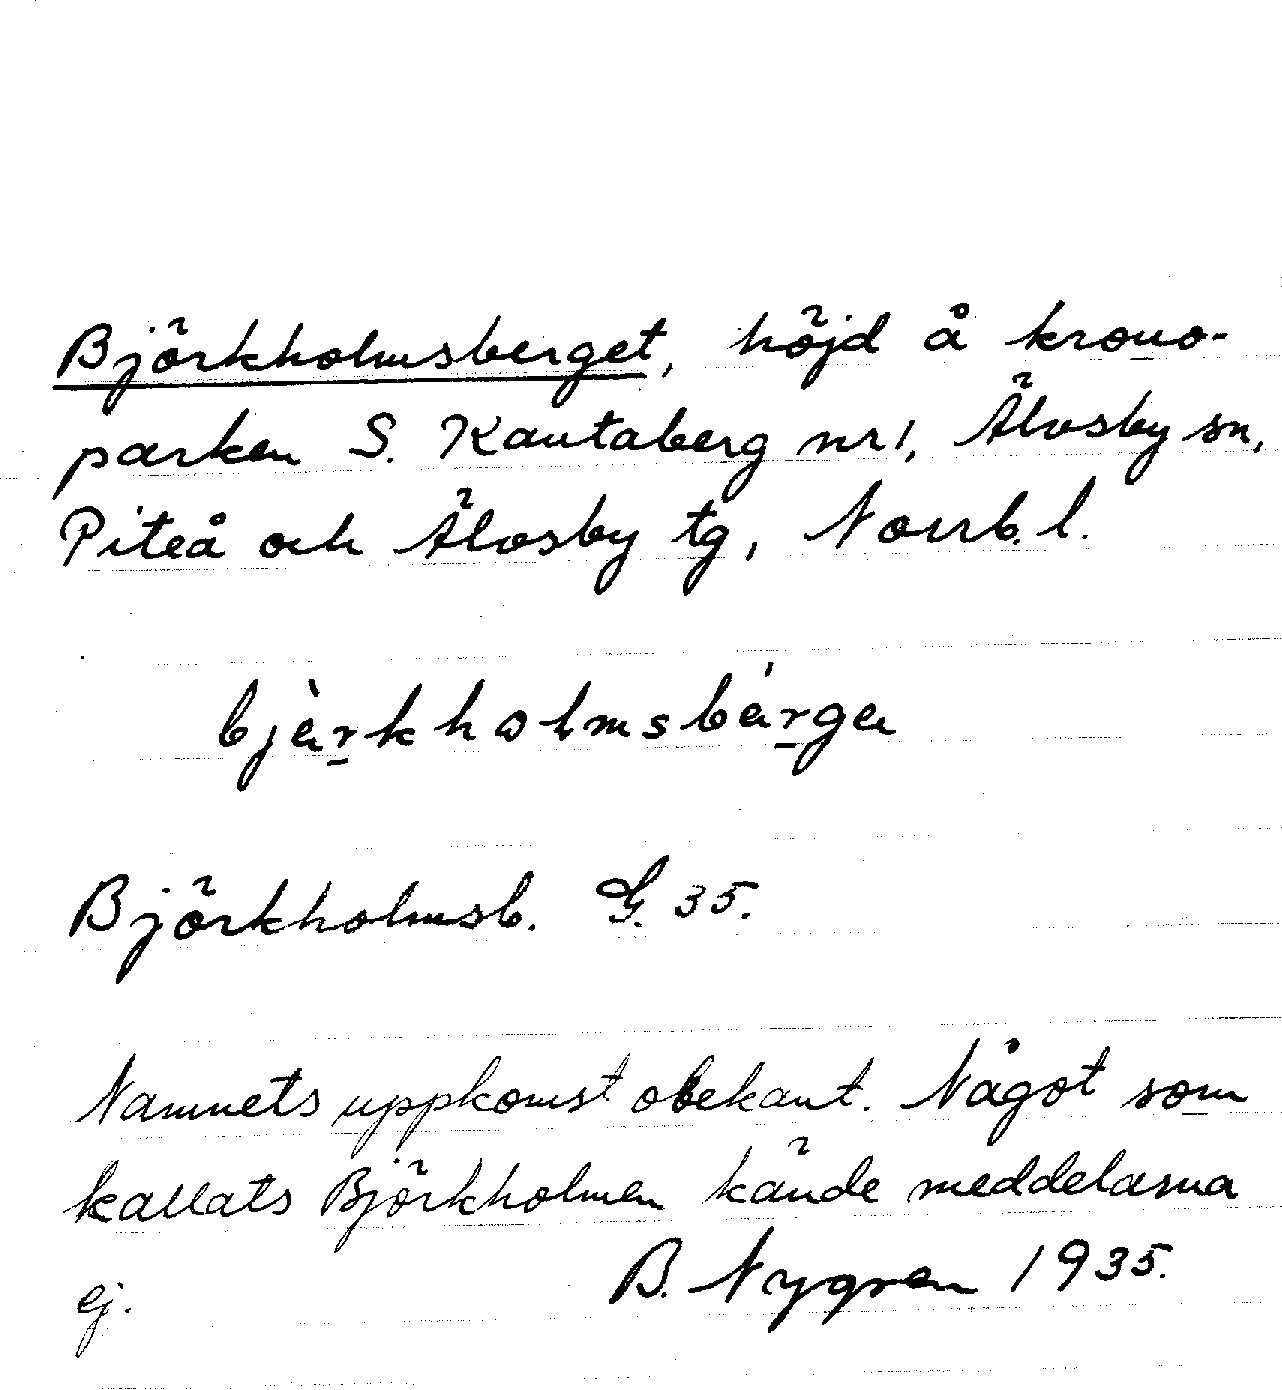 Björkholmsberget, höjd å krono-
parken S. Kautaberg nr 1, Älvsby sn,
Piteå och Älvsby tg, Norrb. l.
bjèrkholmsbérga
Björkholmsb. G. 35.
Namnets uppkomst obekant. Något som
kallats Björkholmen kände meddelarna
ej.
B. Nygren 1935.